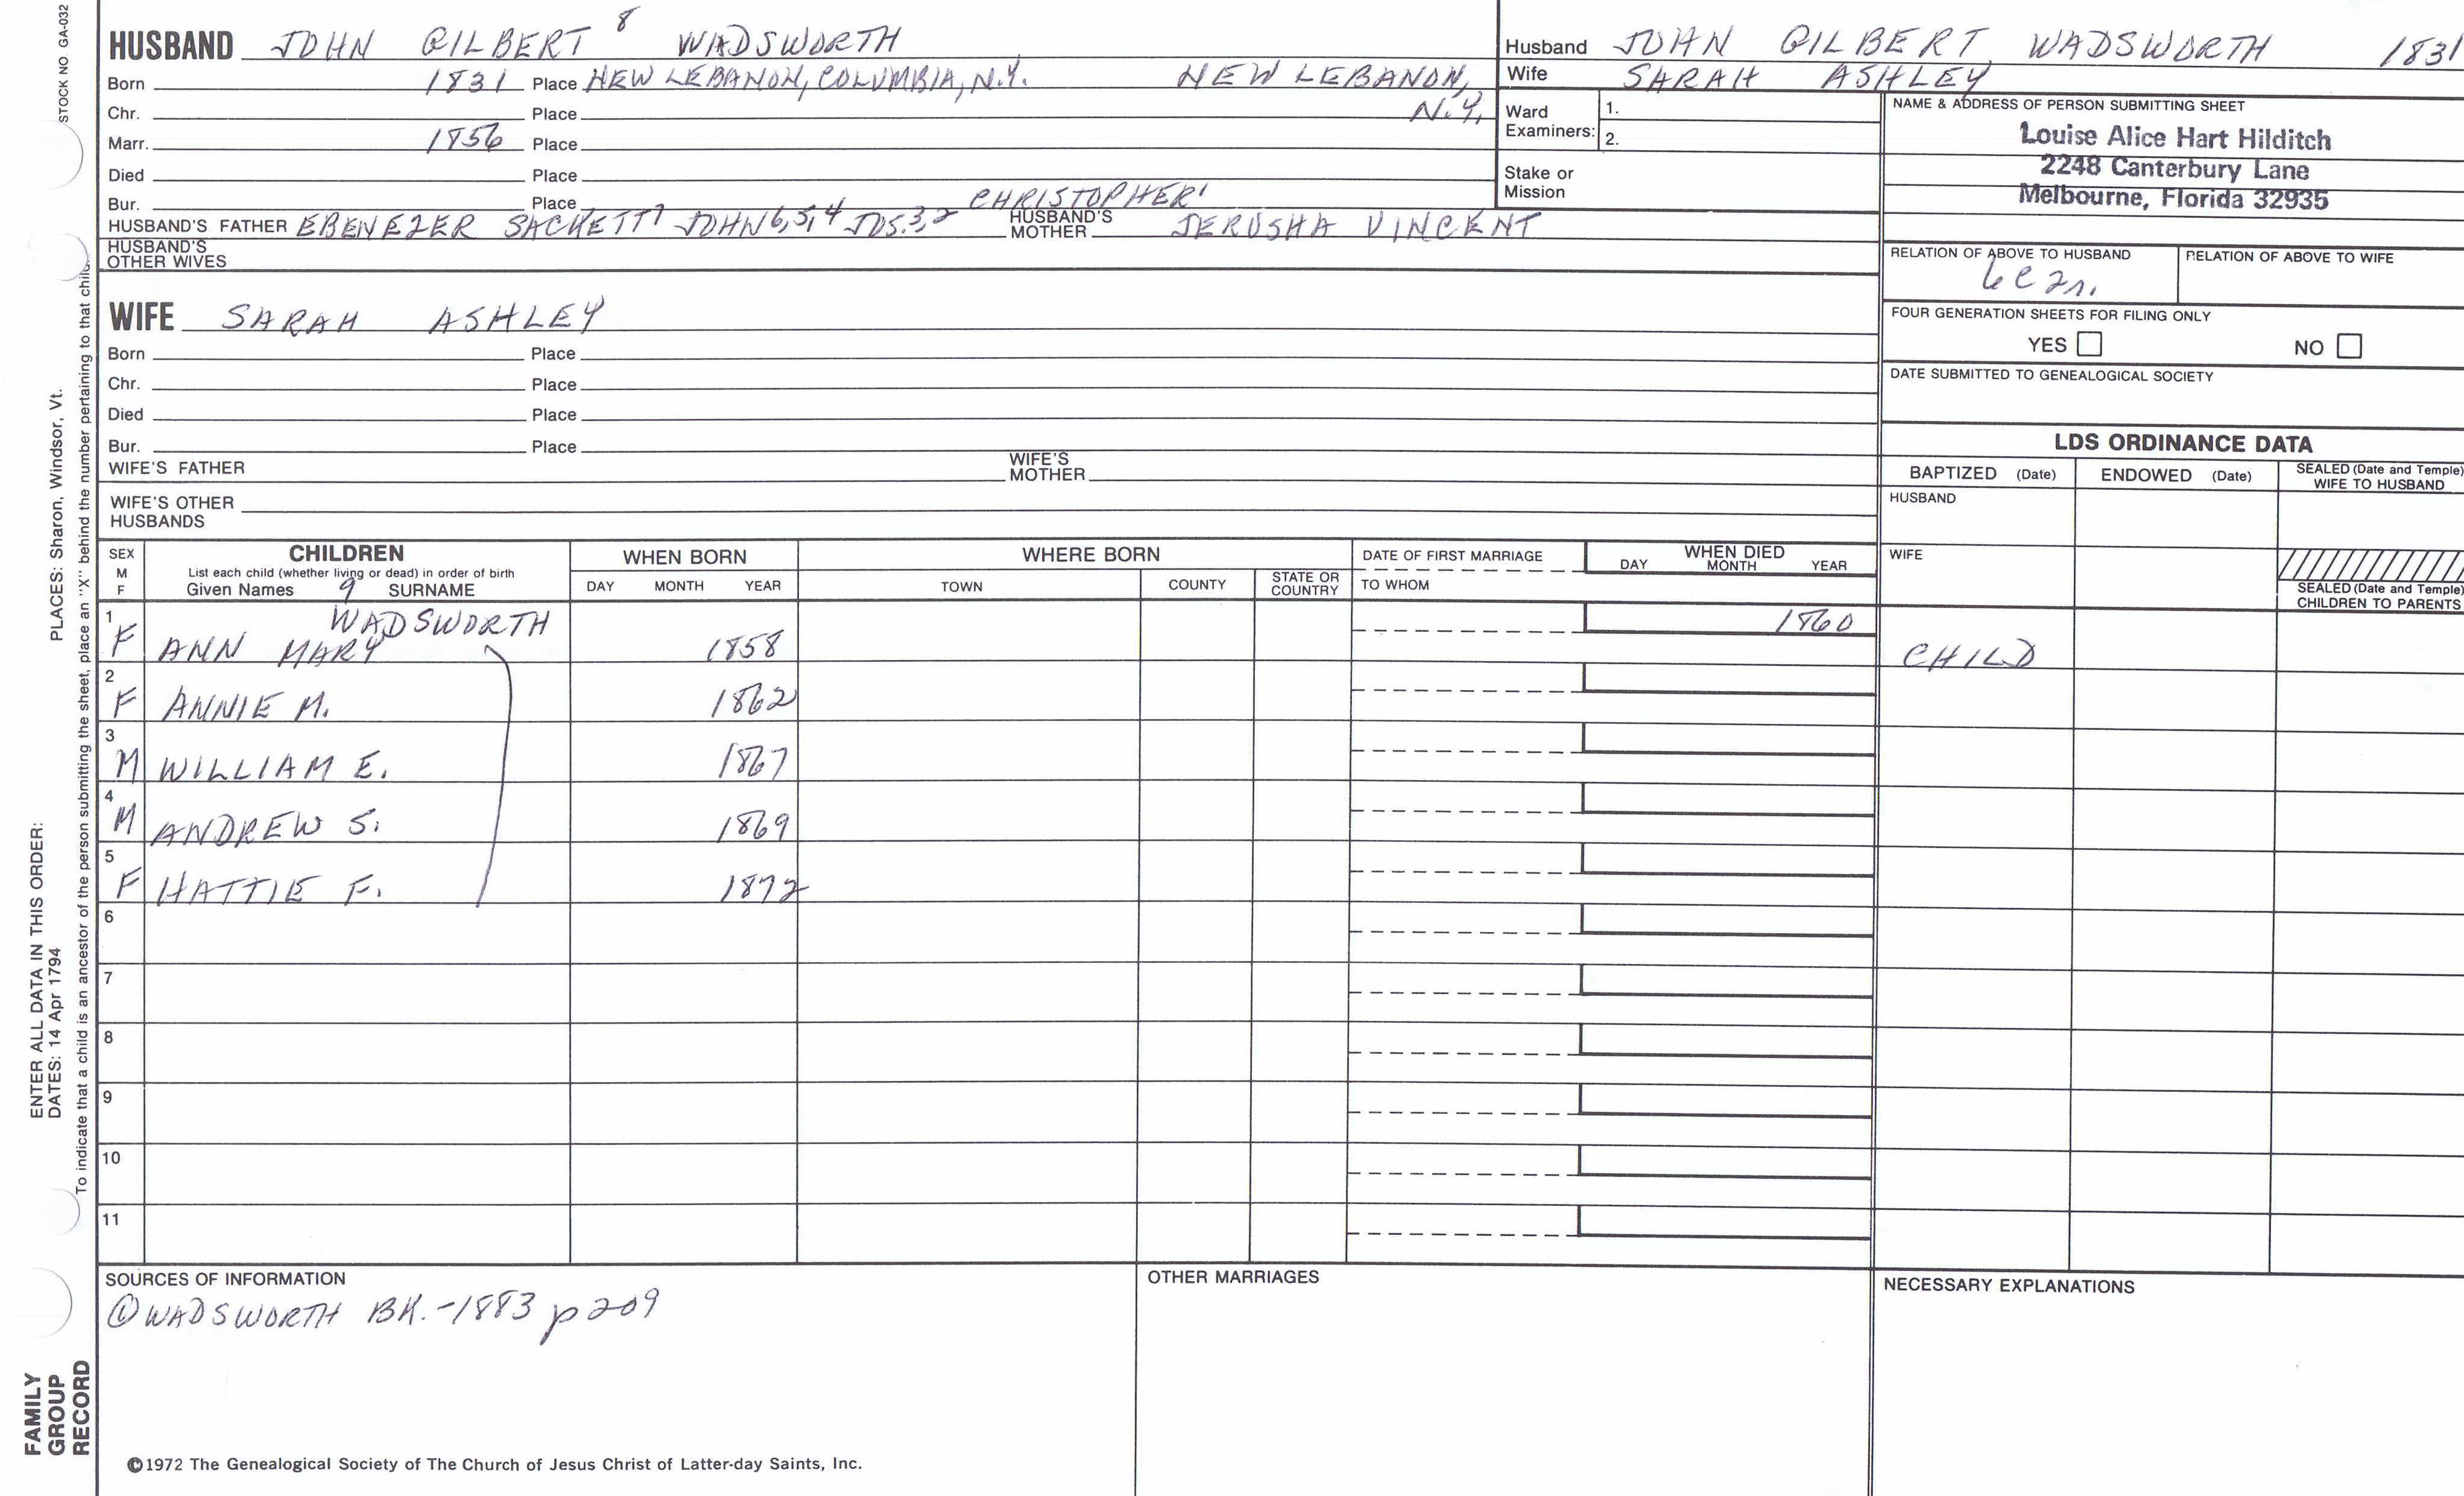 STOCK NO. GA-032
HUSBAND JOHN GILBERT 8 WADSWORTH
Born 1831 Place NEW LEBANON, COLUMBIA, N.Y. NEW LEBANON, N.Y.
Chr. Place
Marr. 1856 Place
Died Place
Bur. Place
HUSBAND'S FATHER EBENEZER SACKETT7 JOHN6,5,4 JOS.3,2 CHRISTOPHER1 HUSBAND'S MOTHER JERUSHA VINCENT
HUSBAND'S OTHER WIVES
WIFE SARAH ASHLEY
Born Place
Chr. Place
Died Place
Bur. Place
WIFE'S FATHER WIFE'S MOTHER
WIFE'S OTHER HUSBANDS
Husband JOHN GILBERT WADSWORTH 1831
Wife SARAH ASHLEY
Ward Examiners: 1.
2.
Stake or Mission
NAME & ADDRESS OF PERSON SUBMITTING SHEET
Louise Alice Hart Hilditch
2248 Canterbury Lane
Melbourne, Florida 32935
RELATION OF ABOVE TO HUSBAND RELATION OF ABOVE TO WIFE
6C2r.
FOUR GENERATION SHEETS FOR FILING ONLY
YES NO
DATE SUBMITTED TO GENEALOGICAL SOCIETY
LDS ORDINANCE DATA
BAPTIZED (Date) ENDOWED (Date) SEALED (Date and Temple) WIFE TO HUSBAND
HUSBAND
WIFE
SEALED (Date and Temple) CHILDREN TO PARENTS
SEX M F
CHILDREN
List each child (whether living or dead) in order of birth
Given Names 9 SURNAME
WHEN BORN
DAY MONTH YEAR
WHERE BORN
TOWN COUNTY STATE OR COUNTRY
DATE OF FIRST MARRIAGE
TO WHOM
WHEN DIED
DAY MONTH YEAR
1 F ANN MARY WADSWORTH 1858 1860 CHILD
2 F ANNIE M. 1862
3 M WILLIAM E. 1867
4 M ANDREW S. 1869
5 F HATTIE F. 1872
6
7
8
9
10
11
SOURCES OF INFORMATION
① WADSWORTH BK.-1883 p 209
OTHER MARRIAGES
NECESSARY EXPLANATIONS
©1972 The Genealogical Society of The Church of Jesus Christ of Latter-day Saints, Inc.
FAMILY
GROUP
RECORD
ENTER ALL DATA IN THIS ORDER:
DATES: 14 Apr 1794
PLACES: Sharon, Windsor, Vt.
To indicate that a child is an ancestor of the person submitting the sheet, place an "X" behind the number pertaining to that child.